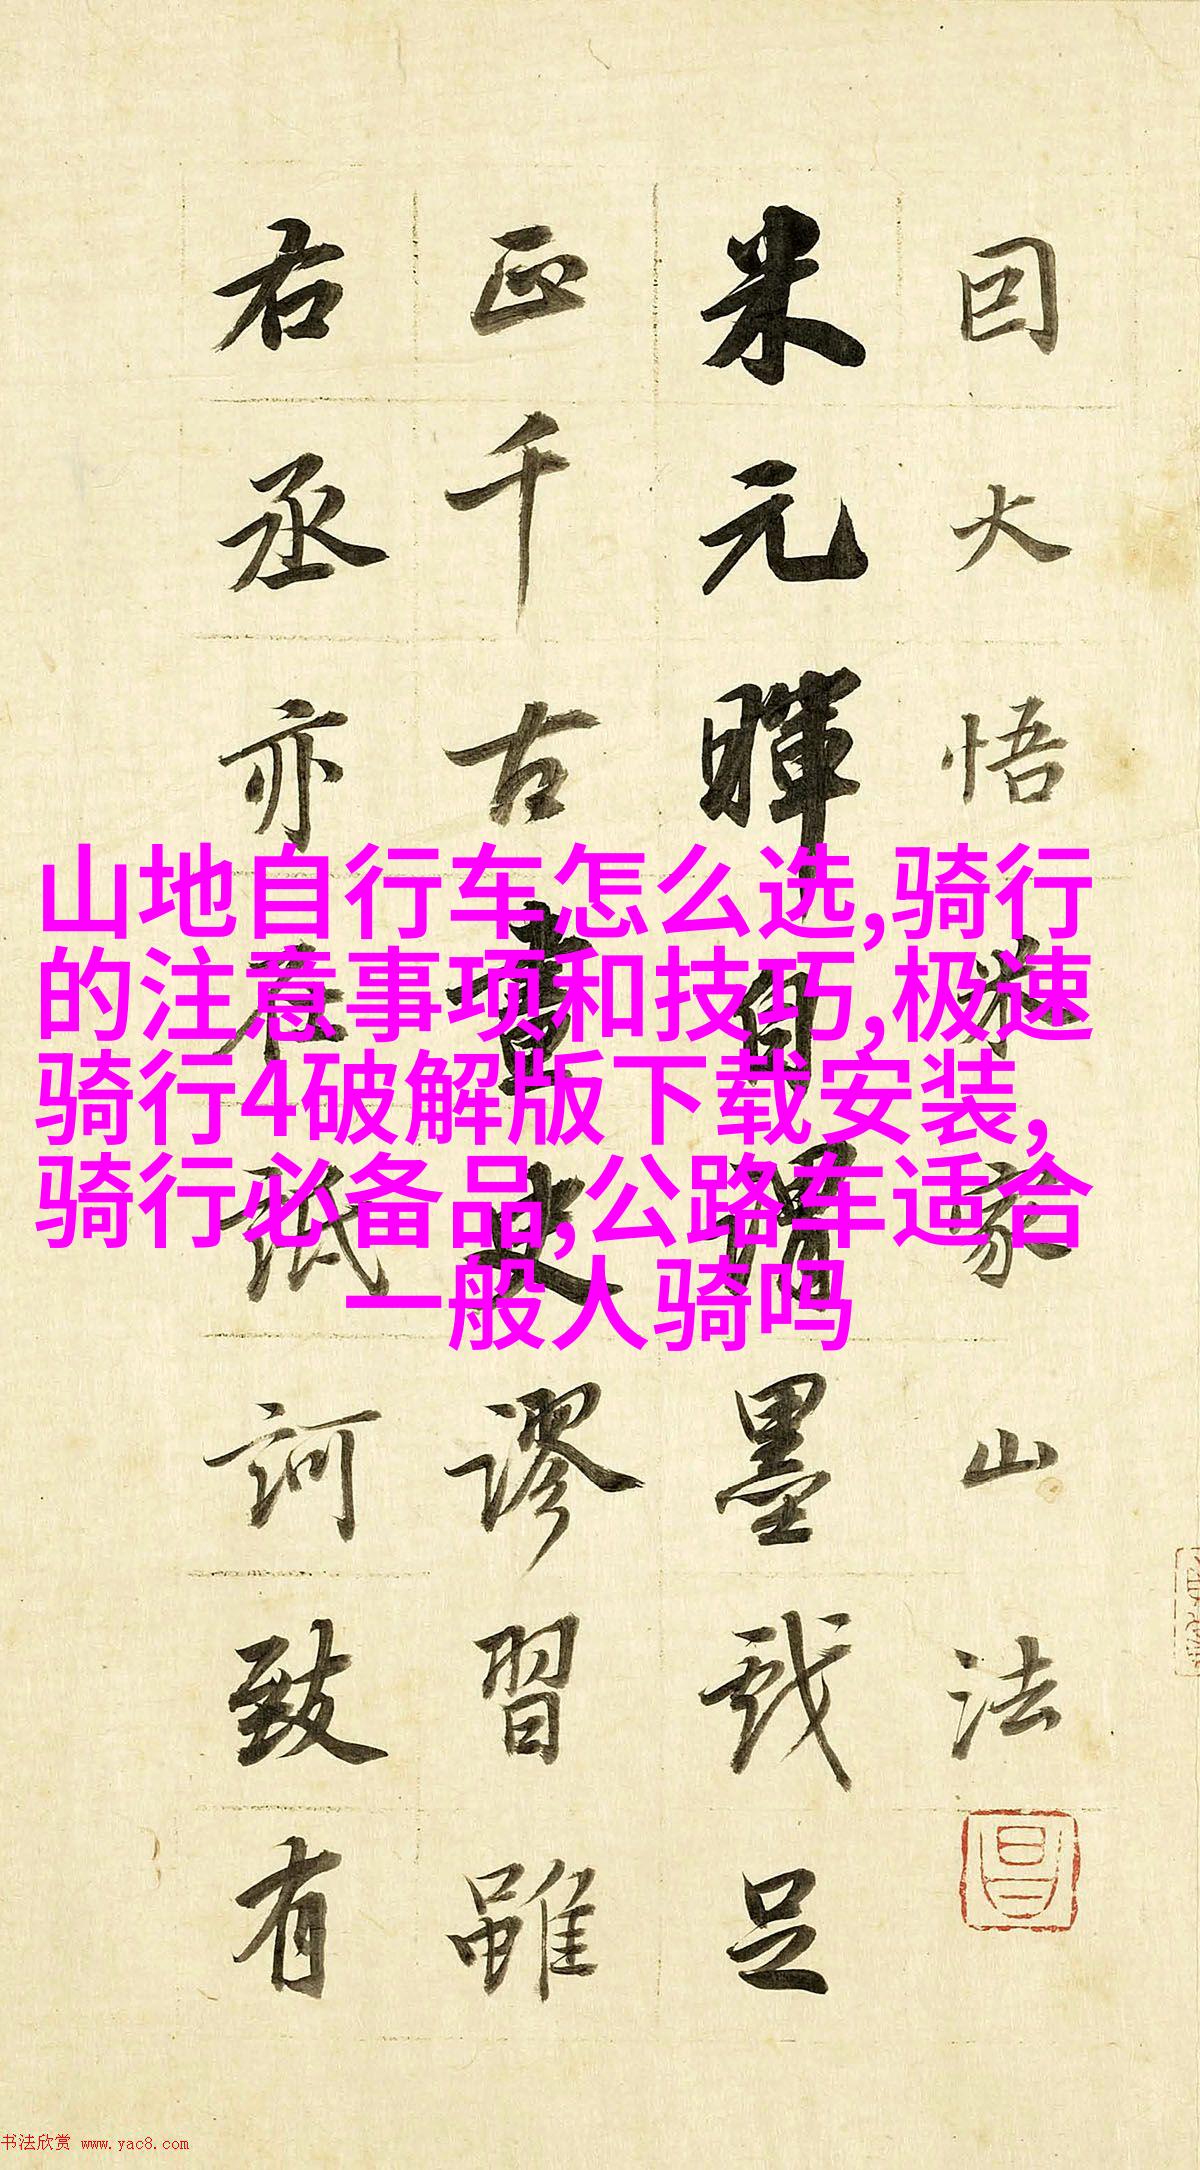 囙大悟米家山法
米元暉自謂墨戲足
正千古畫史謬習雖
右丞亦在詆訶致有
山地自行车怎么选,骑行
的注意事项和技巧,极速
骑行4破解版下载安装,
骑行必备品,公路车适合
一般人骑吗
书法欣赏 www.yac8.com